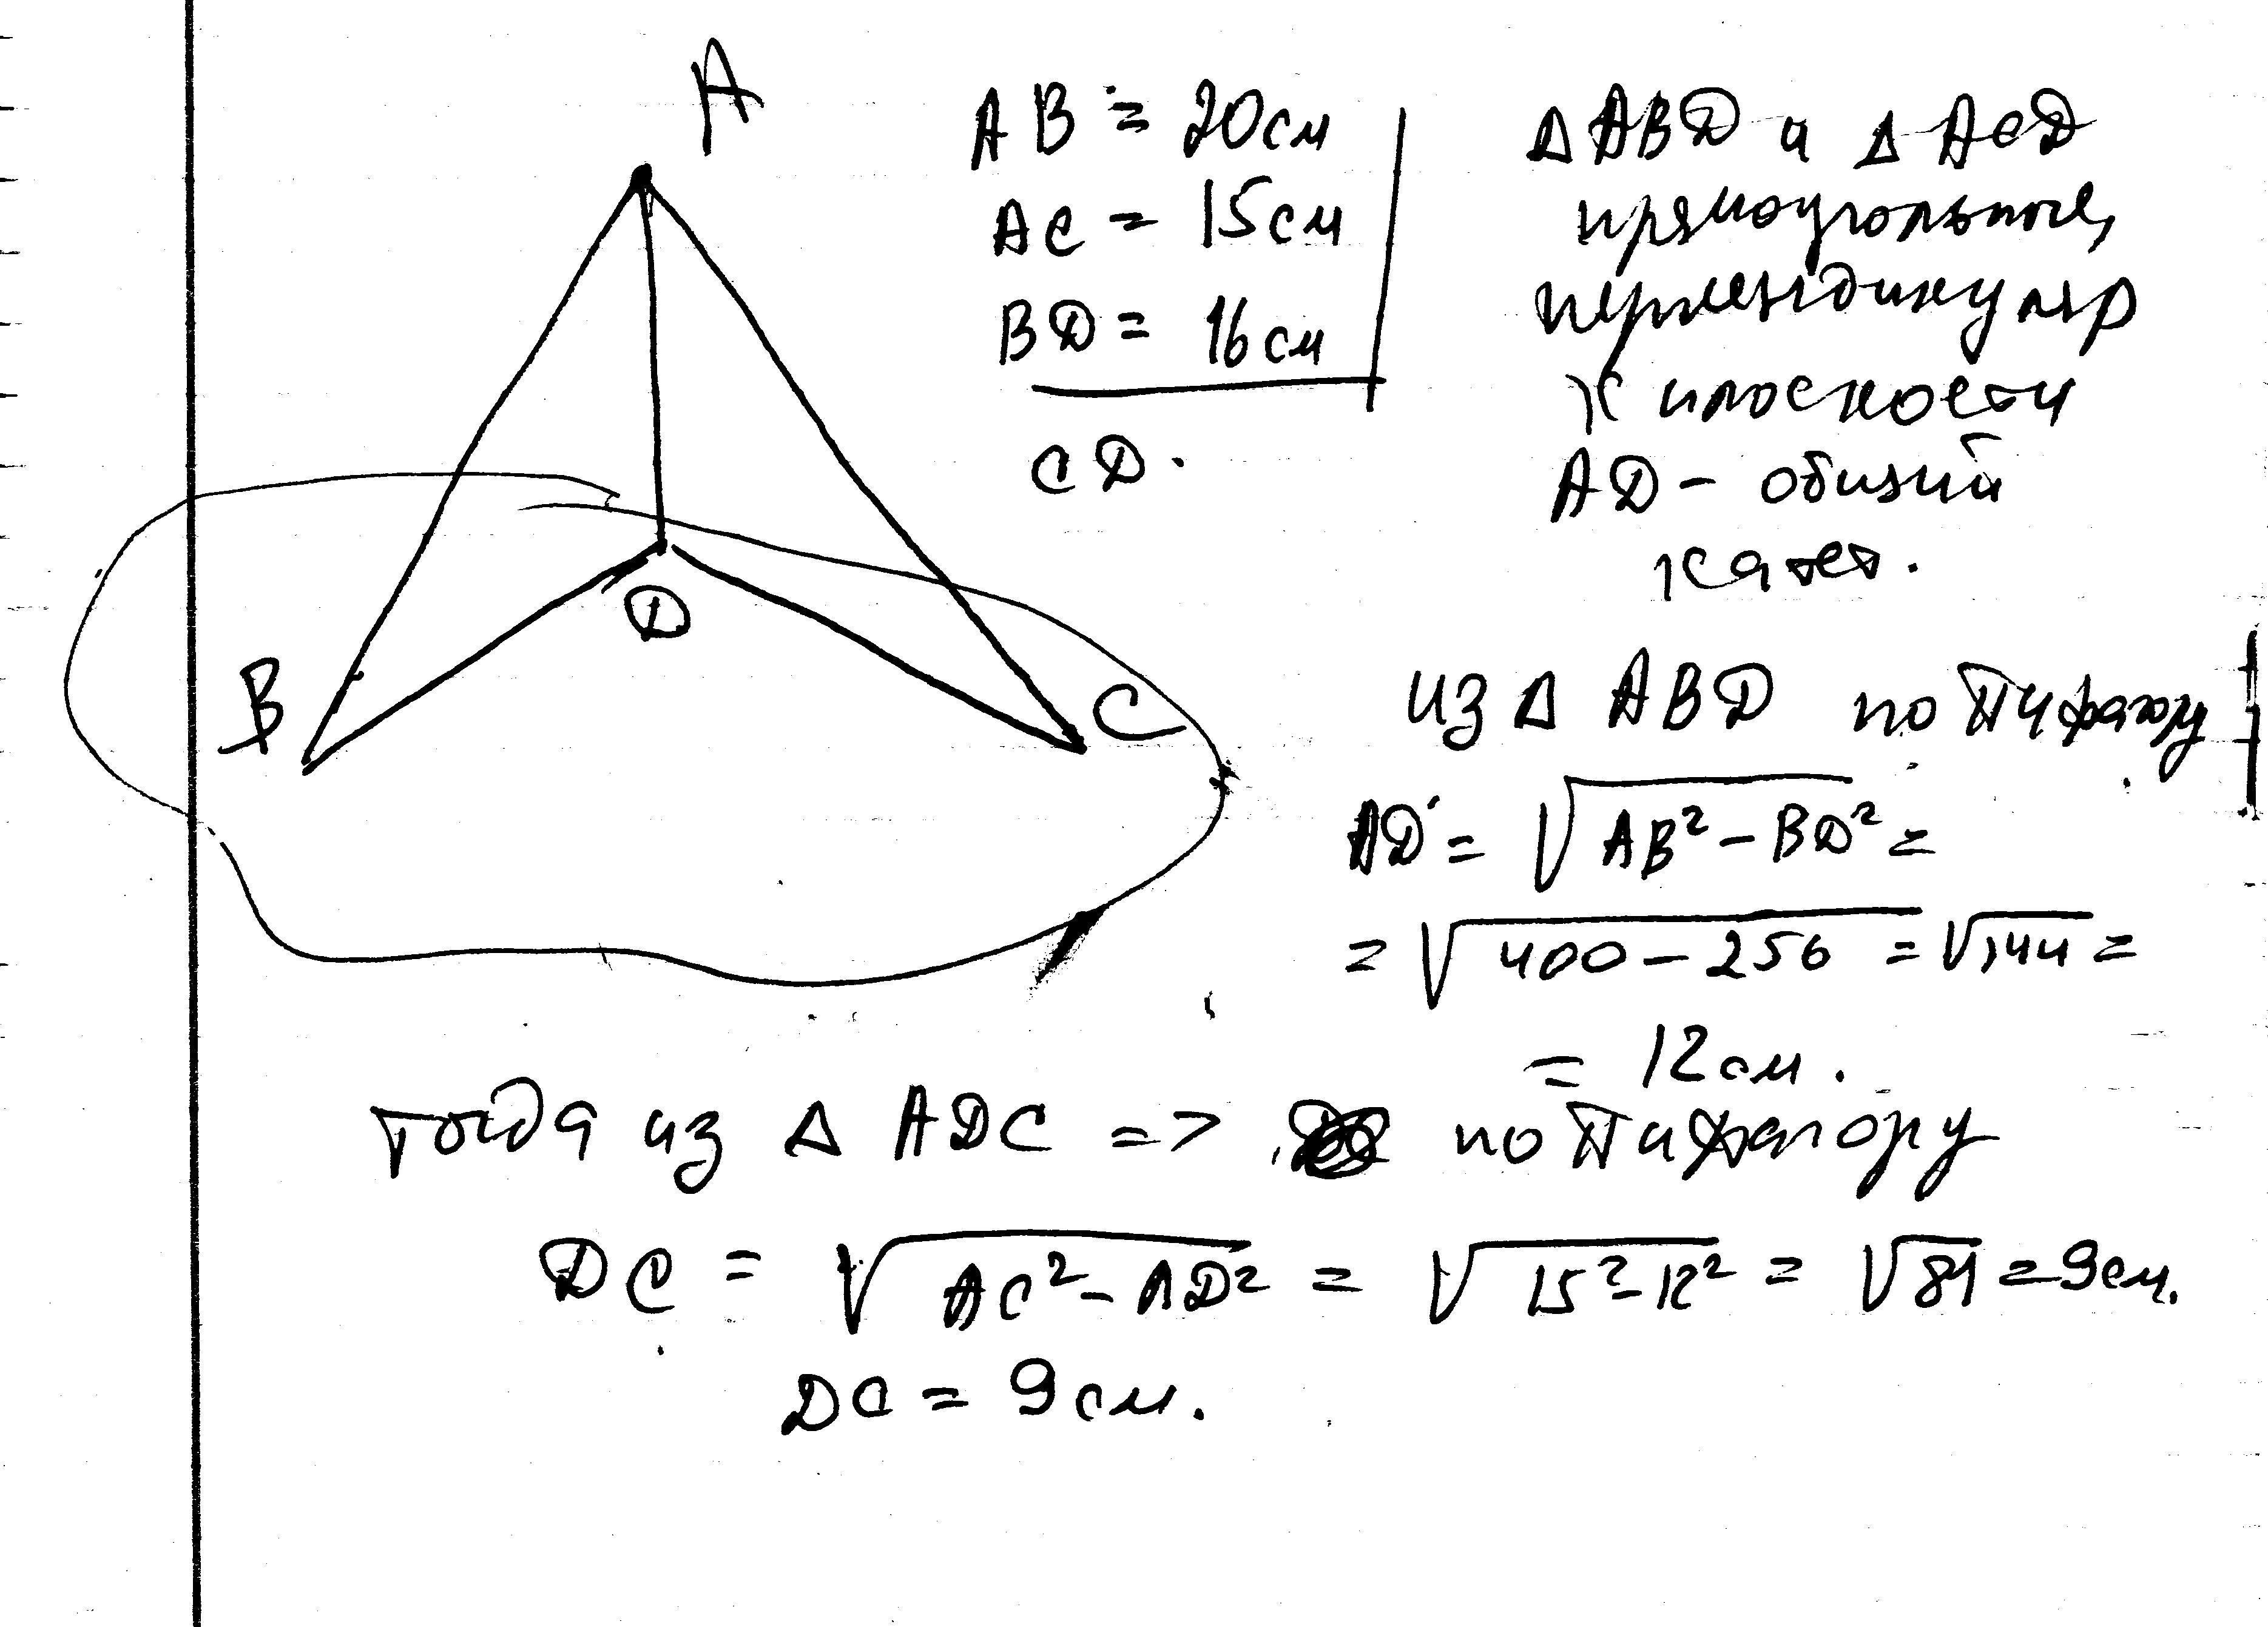 A
AB = 20см
AC = 15см
BD = 16см
CD.
Δ ABD и Δ ACD
прямоугольные,
перпендикуляр
к плоскости
AD - общий
катет.
D
B
C
из Δ ABD по Пифагору
AD = √AB² - BD² =
= √400 - 256 = √144 =
= 12 см.
Тогда из Δ ADC => по Пифагору
DC = √AC² - AD² = √15² - 12² = √81 = 9см.
DC = 9 см.